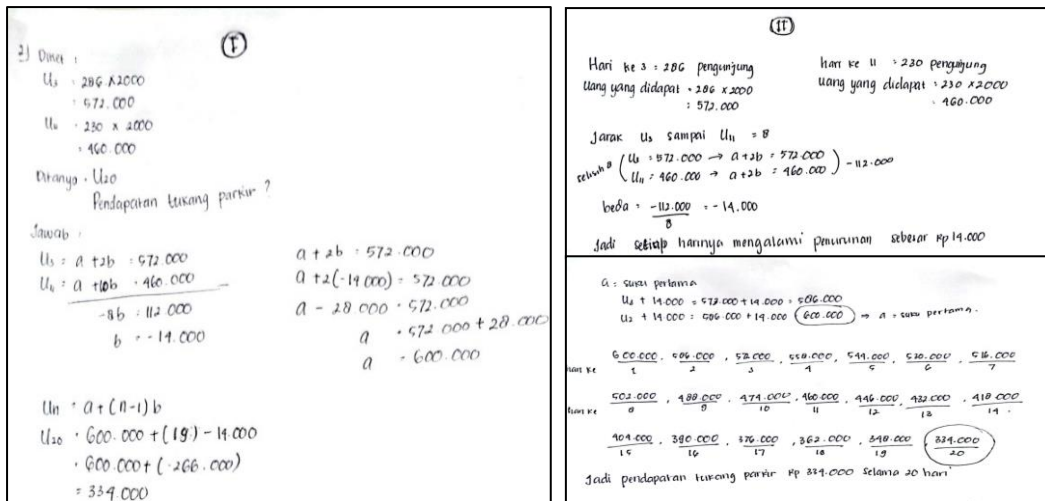 I
2) Diket :
U3 : 286 x 2000
: 572.000
U11 : 230 x 2000
: 460.000
Ditanya : U20
Pendapatan tukang parkir ?
Jawab :
U3 : a + 2b : 572.000
U11 : a + 10b : 460.000 -
-8b : 112.000
b : -14.000
a + 2b : 572.000
a + 2(-14.000) : 572.000
a - 28.000 : 572.000
a : 572.000 + 28.000
a : 600.000
Un : a + (n-1) b
U20 : 600.000 + (19.) - 14.000
: 600.000 + (-266.000)
= 334.000
II
Hari ke 3 : 286 pengunjung
Uang yang didapat : 286 x 2000
: 572.000
hari ke 11 : 230 pengunjung
uang yang didapat : 230 x 2000
: 460.000
Jarak U3 sampai U11 = 8
selisih 8 ( U3 : 572.000 → a + 2b : 572.000
U11 : 460.000 → a + 2b : 460.000 ) - 112.000
beda : -112.000 / 8 = -14.000
Jadi setiap harinya mengalami penurunan sebesar Rp 14.000
a : suku pertama
U3 + 14.000 = 572.000 + 14.000 = 586.000
U2 + 14.000 : 586.000 + 14.000 (600.000) → a = suku pertama.
600.000, 586.000, 572.000, 558.000, 544.000, 530.000, 516.000
hari ke 1 2 3 4 5 6 7
502.000, 488.000, 474.000, 460.000, 446.000, 432.000, 418.000
hari ke 8 9 10 11 12 13 14.
404.000, 390.000, 376.000, 362.000, 348.000, 334.000
15 16 17 18 19 20
Jadi pendapatan tukang parkir Rp 334.000 selama 20 hari